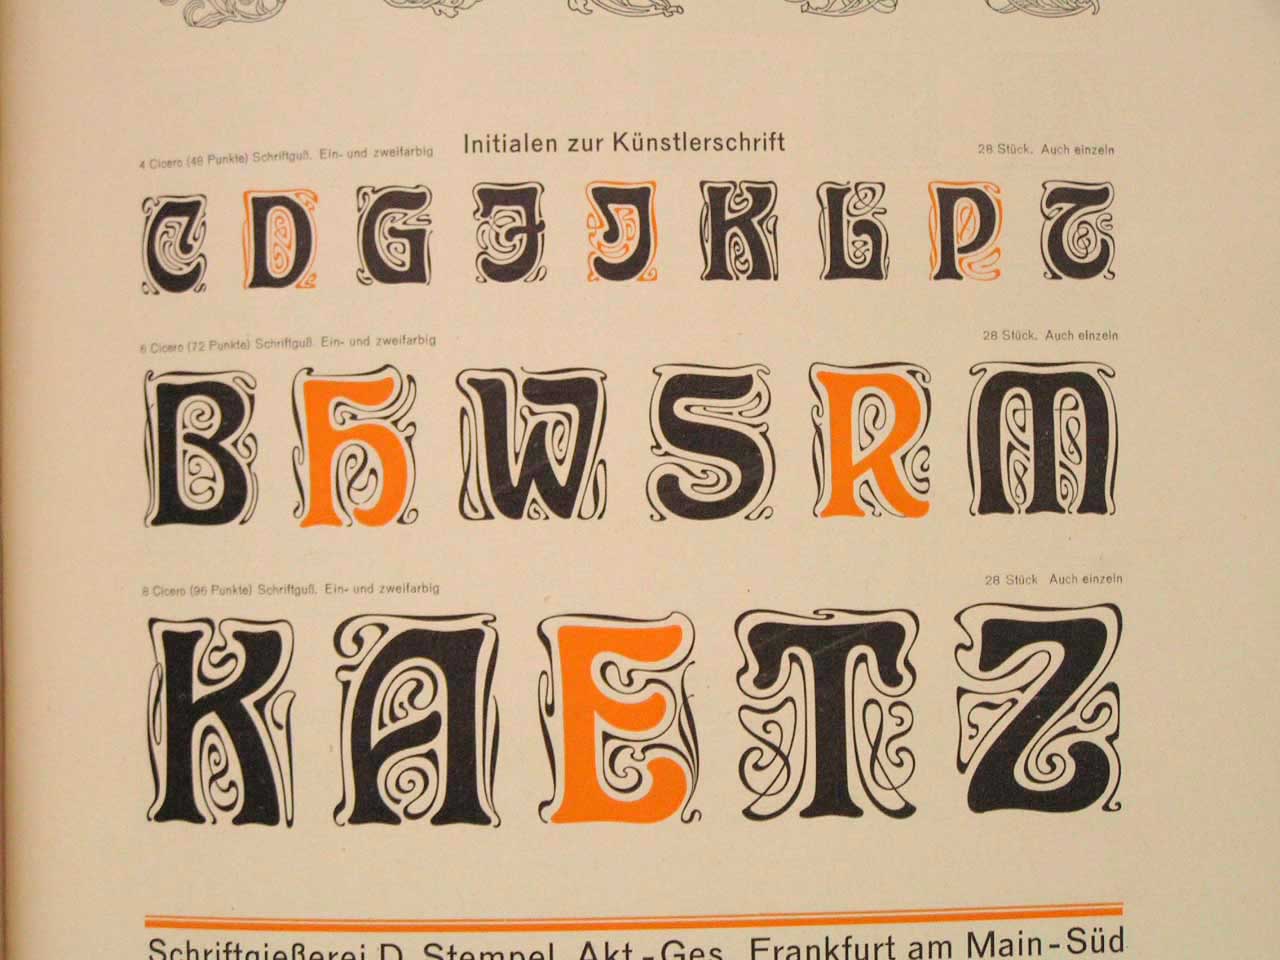 Initialen zur Künstlerschrift
4 Cicero (48 Punkte) Schriftguß. Ein- und zweifarbig 28 Stück. Auch einzeln
C D G F J K L P T
6 Cicero (72 Punkte) Schriftguß. Ein- und zweifarbig 28 Stück. Auch einzeln
B H W S R M
8 Cicero (96 Punkte) Schriftguß. Ein- und zweifarbig 28 Stück Auch einzeln
K A E T Z
Schriftgießerei D. Stempel, Akt.-Ges. Frankfurt am Main-Süd